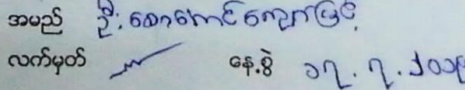 အမည် ဦးအောင်ကျော်မြင့်
လက်မှတ် နေ့စွဲ ၁၇.၇.၂၀၁၉